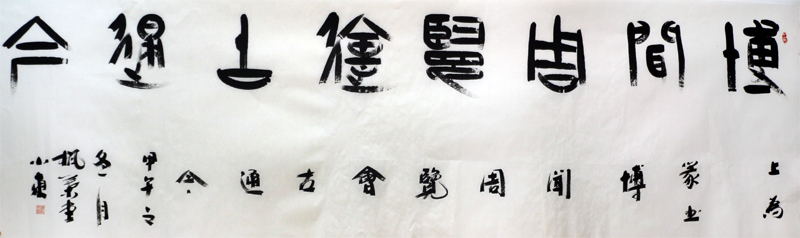 博聞周覽會古通今
上為
篆書
博聞周覽會古通今
甲午之
冬一月